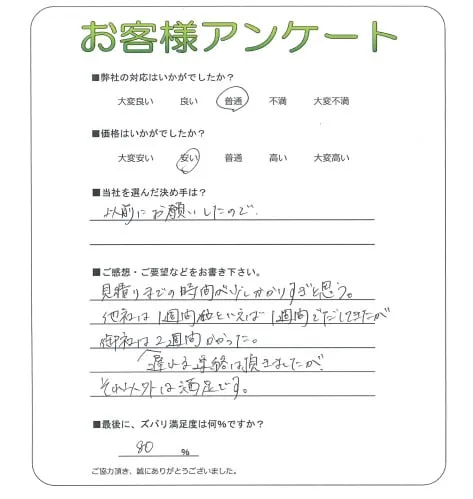 お客様アンケート
■弊社の対応はいかがでしたか？
大変良い 良い 普通 不満 大変不満
■価格はいかがでしたか？
大変安い 安い 普通 高い 大変高い
■当社を選んだ決め手は？
以前にお願いしたので。
■ご感想・ご要望などをお書き下さい。
見積りまでの時間が少しかかりすぎと思う。
他社は1週間後といえば1週間でだしてきたが
御社は2週間かかった。
遅れる連絡は頂きましたが
それ以外は満足です。
■最後に、ズバリ満足度は何%ですか？
80 %
ご協力頂き、誠にありがとうございました。